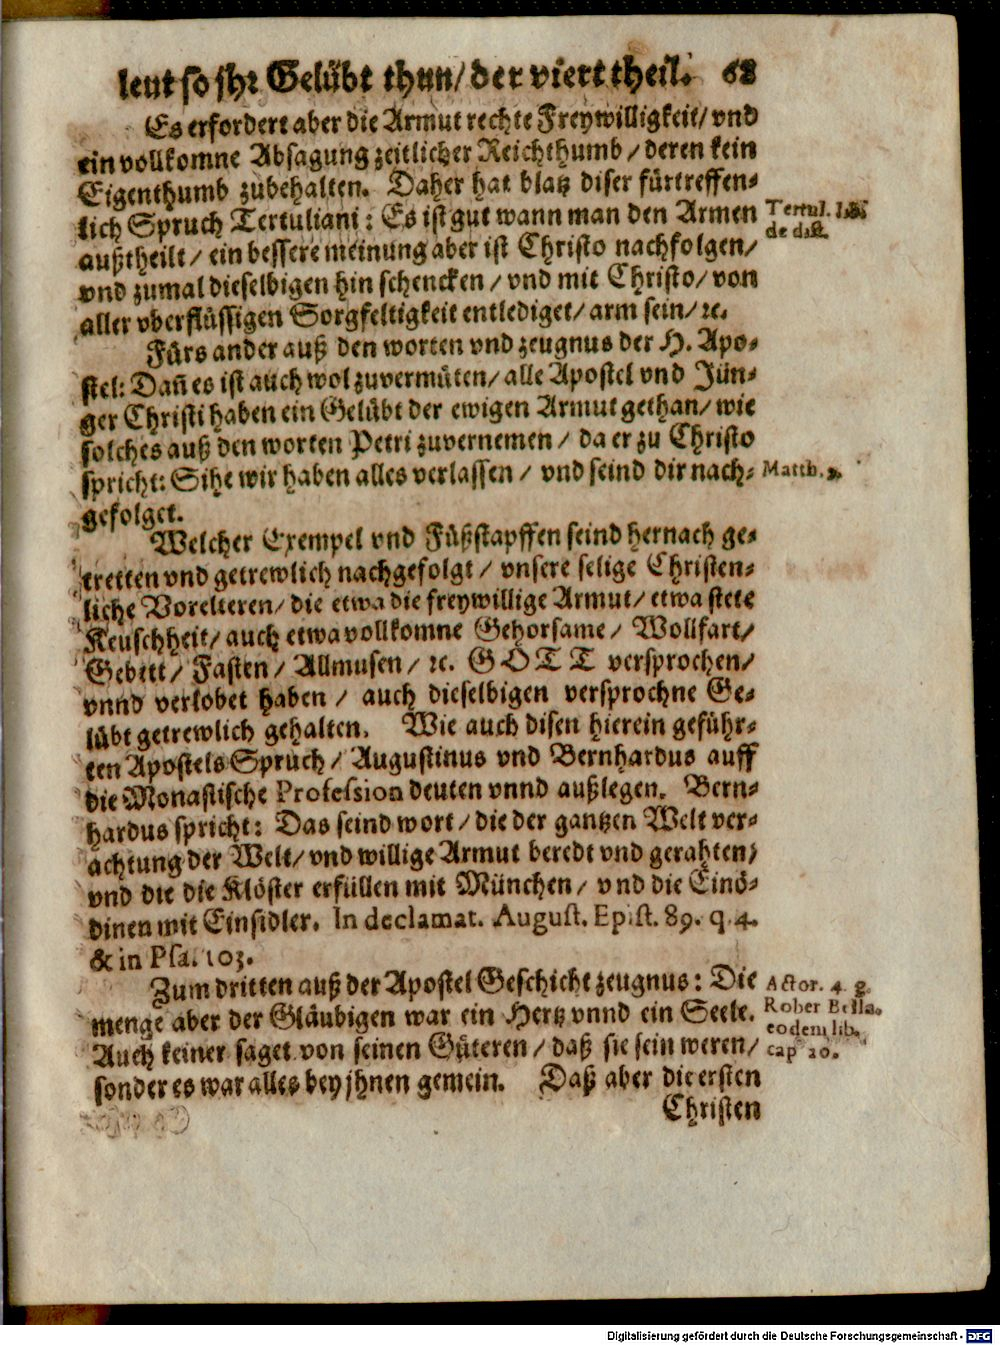 leut so jhr Gelübt thun/ der viert theil. 68
Es erfordert aber die Armut rechte Freywilligkeit/ vnd
ein vollkomne Absagung zeitlicher Reichthumb / deren kein
Eigenthumb zubehalten. Daher hat blatz diser fürtreffen-
lich Spruch Tertuliani : Es ist gut wann man den Armen
Tertul. lib.
de dist.
außtheilt / ein bessere meinung aber ist Christo nachfolgen/
vnd zumal dieselbigen hin schencken / vnd mit Christo/ von
aller vberflüssigen Sorgfeltigkeit entlediget/ arm sein/ ꝛc.
Fürs ander auß den worten vnd zeugnus der H. Apo-
stel: Dañ es ist auch wol zuvermüten/ alle Apostel vnd Jün-
ger Christi haben ein Gelübt der ewigen Armut gethan/ wie
solches auß den worten Petri zuvernemen / da er zu Christo
spricht: Sihe wir haben alles verlassen / vnd seind dir nach-
Matth.
gefolget.
Welcher Exempel vnd Füßstapffen seind hernach ge-
tretten vnd getrewlich nachgefolgt / vnsere selige Christen-
liche Vorelteren/ die etwa die freywillige Armut/ etwa stete
Keuschheit/ auch etwa vollkomne Gehorsame / Wollfart/
Gebett / Fasten / Allmusen / ꝛc. GOTT versprochen/
vnnd verlobet haben / auch dieselbigen versprochne Ge-
lübt getrewlich gehalten. Wie auch disen hierein geführ-
ten Apostels Spruch / Augustinus vnd Bernhardus auff
die Monastische Profession deuten vnnd außlegen. Bern-
hardus spricht: Das seind wort / die der gantzen Welt ver-
achtung der Welt/ vnd willige Armut beredt vnd gerahten/
vnd die die Klöster erfüllen mit München / vnd die Einö-
dinen mit Einsidler. In declamat. August. Epist. 89. q. 4.
& in Psa. 103.
Zum dritten auß der Apostel Geschicht zeugnus: Die
Actor. 4.
menge aber der Gläubigen war ein Hertz vnnd ein Seele.
Rober Bella.
eodem lib.
Auch keiner saget von seinen Güteren / daß sie sein weren/
cap 20.
sonder es war alles bey jhnen gemein. Daß aber die ersten
Christen
Digitalisierung gefördert durch die Deutsche Forschungsgemeinschaft - DFG